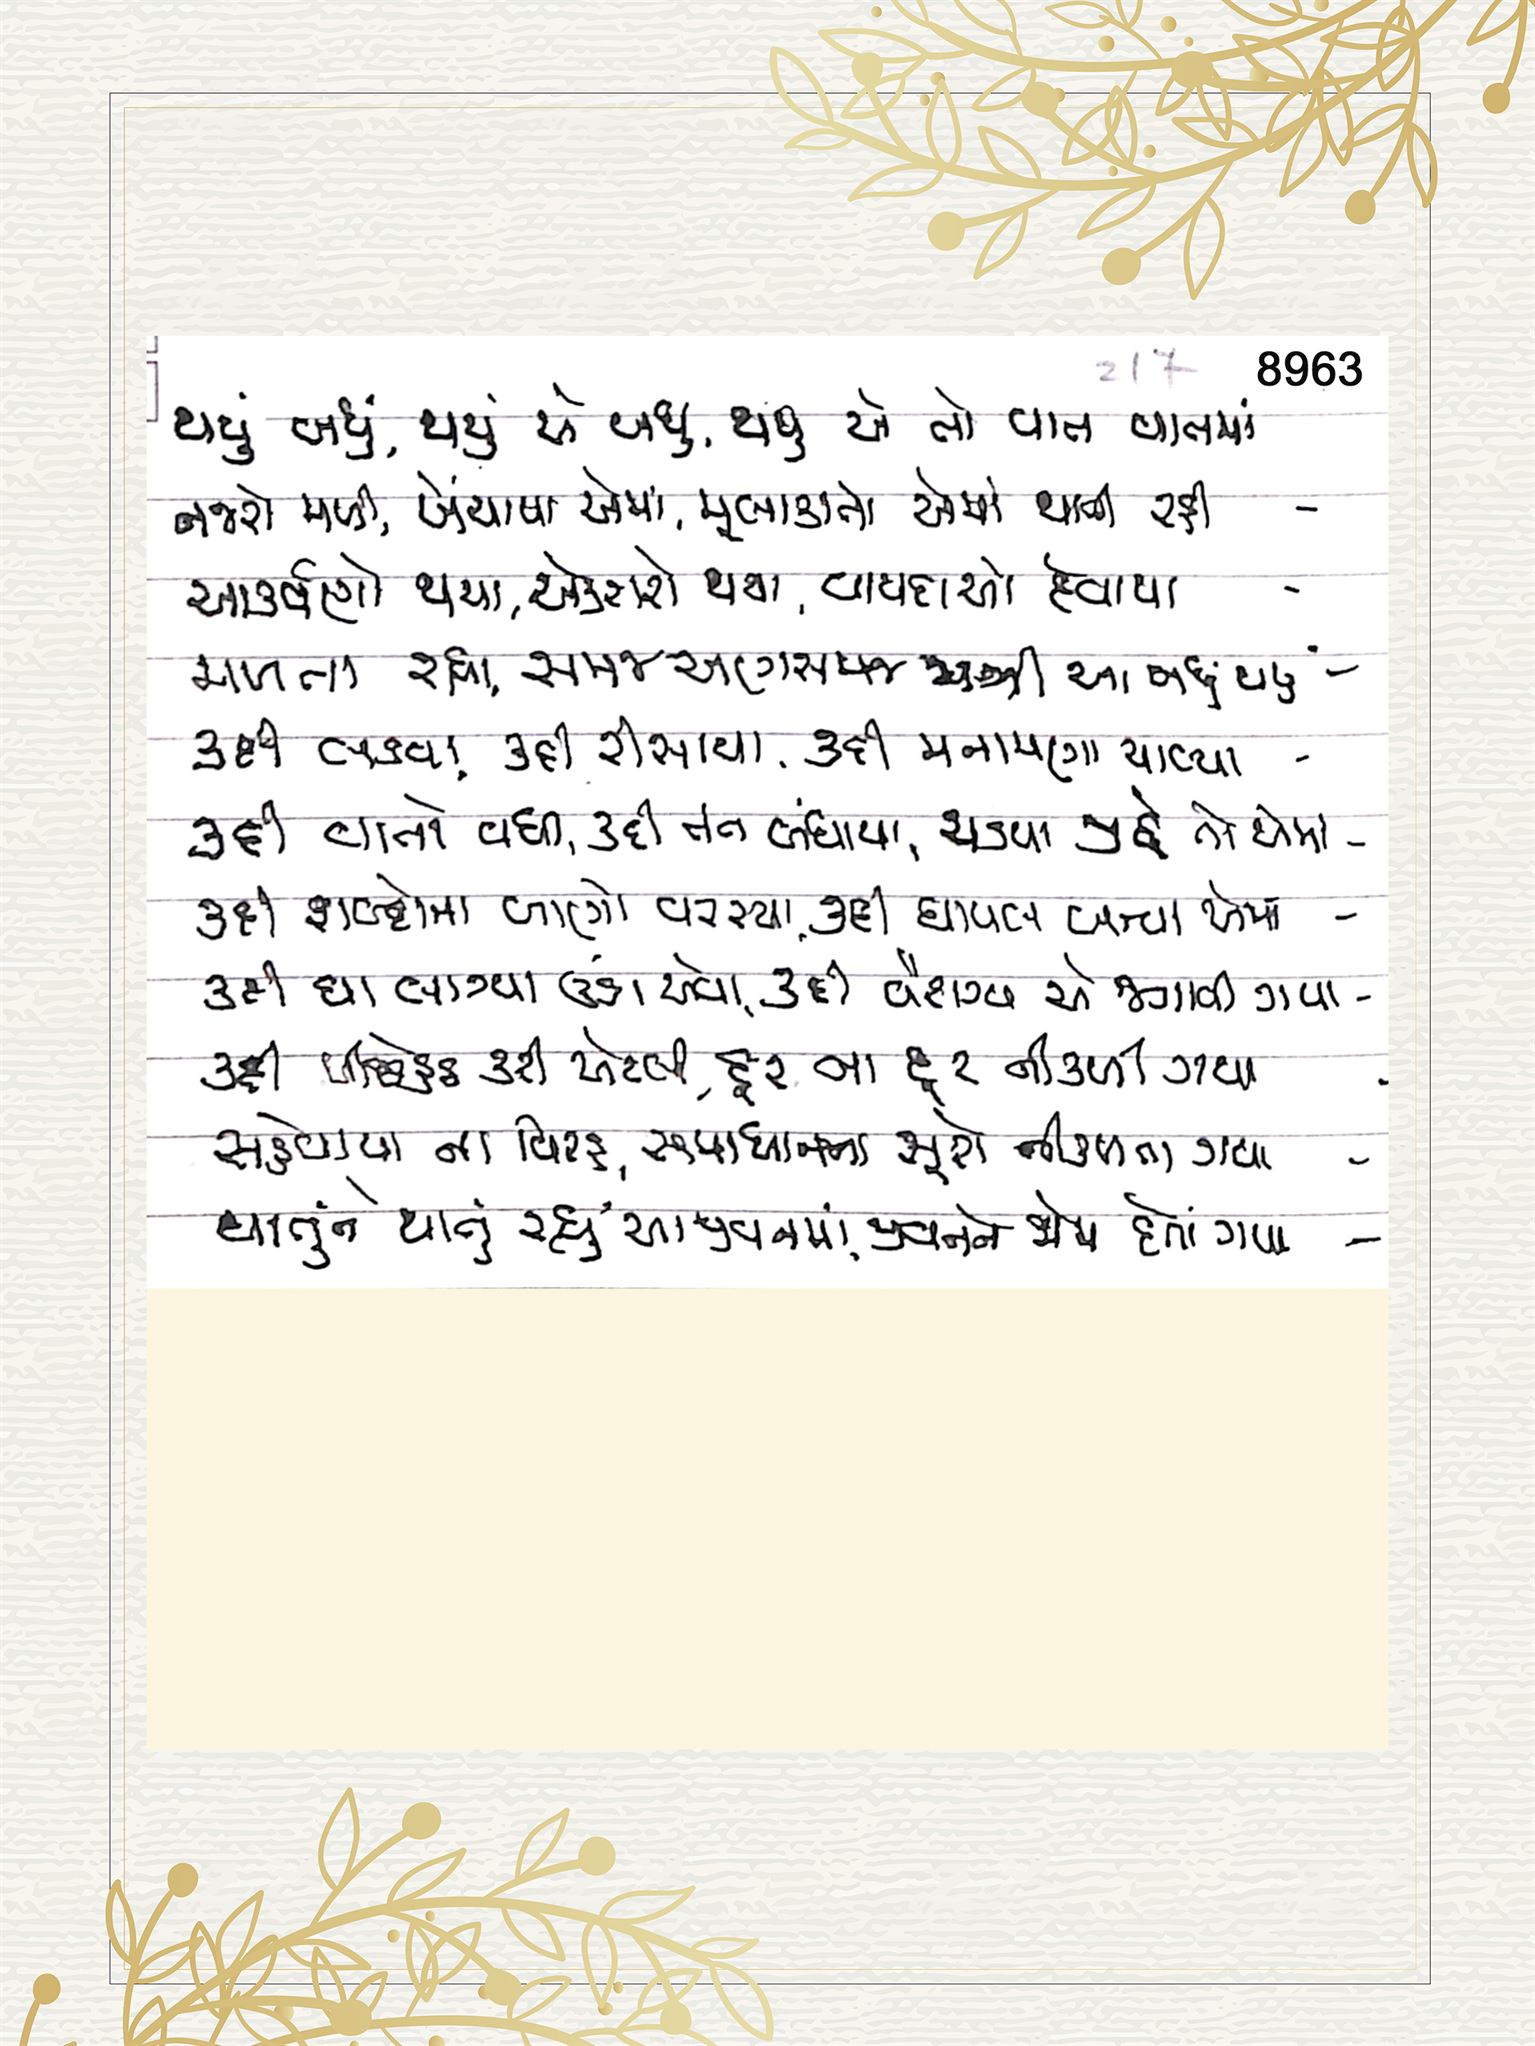 217 8963
થયું બધું, થયું એ બધુ, થયુ એ તો વાત વાતમાં
નજરો મળી, ખેંચાયા એમાં, મૂલાકાતો એમાં થાતી રહી -
આકર્ષણો થયા, એકરારો થયા, વાયદાઓ દેવાયા -
મળતા રહ્યા, સમજ અણસમજ આ બધું થયું -
કદી લડયા, કદી રીસાયા, કદી મનામણા ચાલ્યા -
કદી વાતો વધી, કદી તંત બંધાયા, ચડયા જીદે તો એમાં -
કદી શબ્દોના બાણો વરસ્યા, કદી ઘાયલ બન્યા એમાં -
કદી ઘા લાગ્યા ઉંડા એવા, કદી વૈરાગ્ય એ જગાવી ગયા -
કદી કરી એટલી, દૂર ના દૂર નીકળી ગયા -
સહેવાયા ના વિરહ, સમાધાનના સૂરો નીકળતા ગયા -
થાતુંને થાતું રહ્યું આ જીવનમાં, જીવનને પ્રેમ દેતાં ગયા -